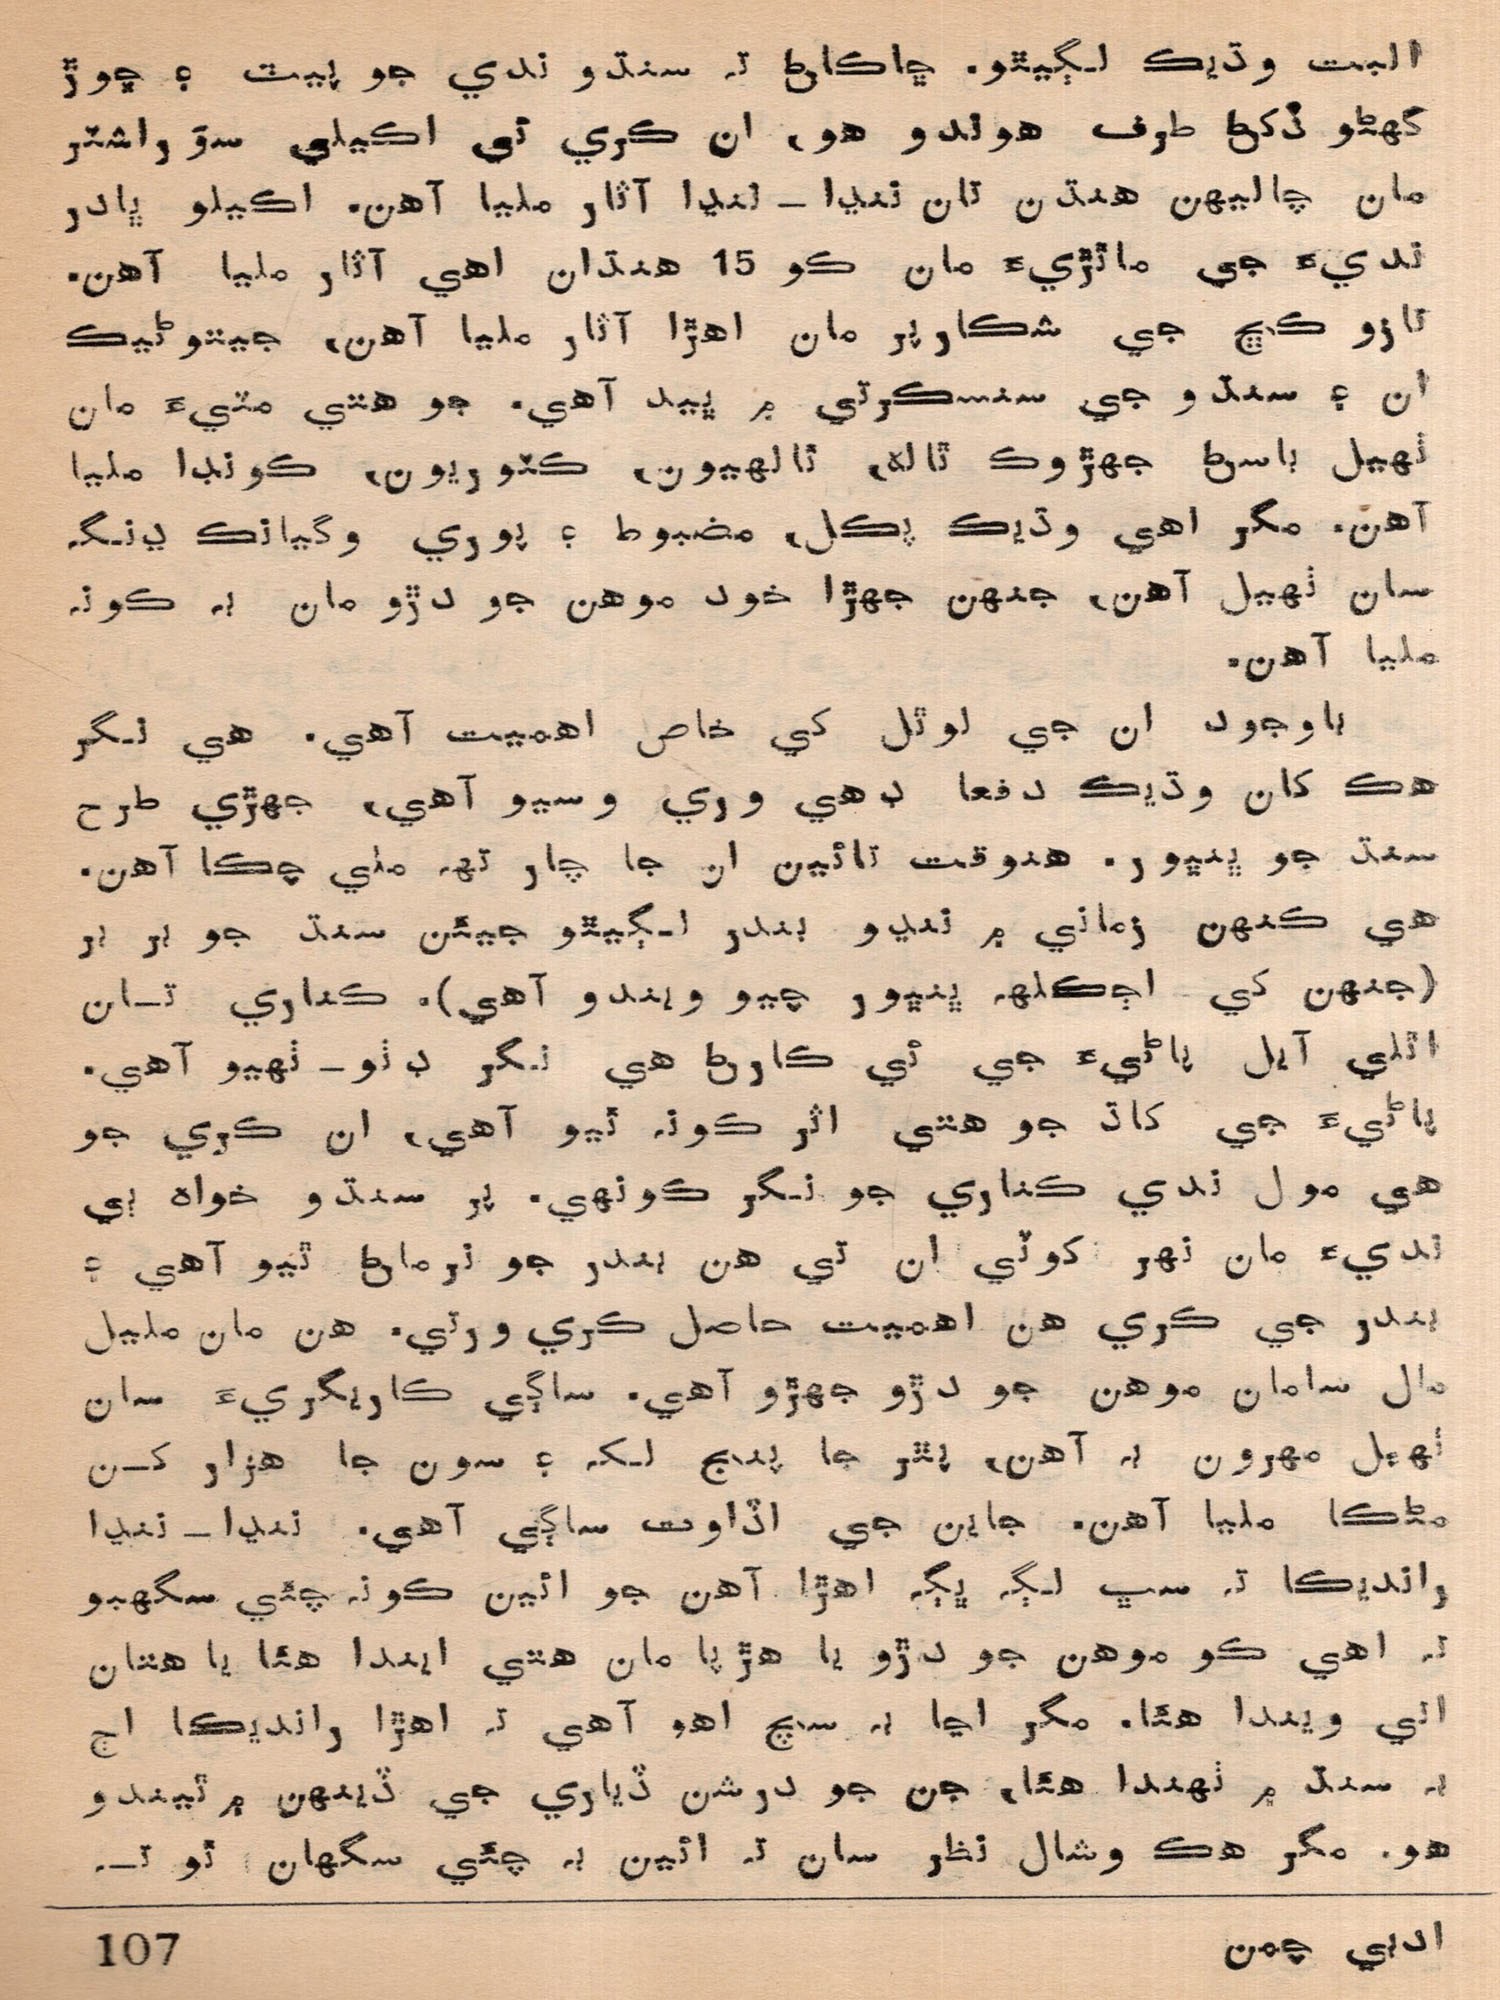 البت وڌيڪ لڳيٿو. ڇاڪاڻ تہ سنڌو ندي جو پيٽ ۽ ڇوڙ
گهڻو ڏکڻ طرف هوندو هو، ان ڪري ئي اڪيلي سوَراشٽر
مان چاليهن هنڌن تان ننڍا ـ ننڍا آثار مليا آهن. اڪيلو ڀادر
نديءَ جي ماٿريءَ مان ڪو 15 هنڌان اهي آثار مليا آهن.
تازو ڪڇ جي شڪارپر مان اهڙا آثار مليا آهن، جيتوڻيڪ
ان ۽ سنڌو جي سنسڪرتي ۾ ڀيد آهي. جو هتي مٽيءَ مان
ٺهيل باسڻ جهڙوڪ ٿالهہ، ٿالهيون، ڪٽوريون، ڪونڊا مليا
آهن. مگر اهي وڌيڪ پڪل، مضبوط ۽ پوري وگيانڪ ڍنگہ
سان ٺهيل آهن، جنهن جهڙا خود موهن جو دڙو مان بہ ڪونہ
مليا آهن.
باوجود ان جي لوٿل کي خاص اهميت آهي. هي نگر
هڪ کان وڌيڪ دفعا ڊهي وري وسيو آهي، جهڙي طرح
سنڌ جو ڀنڀور. هنوقت تائين ان جا چار تهہ ملي چڪا آهن.
هي ڪنهن زماني ۾ ننڍو بندر لڳيٿو جيئن سنڌ جو بر بر
(جنهن کي اڄڪلهہ ڀنڀور چيو ويندو آهي). ڪناري تان
اٿلي آيل پاڻيءَ جي ئي ڪارڻ هي نگر ڊٺو ـ ٺهيو آهي.
پاڻيءَ جي کاڌ جو هتي اثر ڪونہ ٿيو آهي، ان ڪري جو
هي مول ندي ڪناري جو نگر ڪونهي. پر سنڌو خواه ٻي
نديءَ مان نهر کوٽي ان تي هن بندر جو نرماڻ ٿيو آهي ۽
بندر جي ڪري هن اهميت حاصل ڪري ورتي. هن مان مليل
مال سامان موهن جو دڙو جهڙو آهي. ساڳي ڪاريگريءَ سان
ٺهيل مهرون بہ آهن، پٿر جا پنج لکہ ۽ سون جا هزار کن
مڻڪا مليا آهن. جاين جي اڏاوت ساڳي آهي. ننڍا ـ ننڍا
رانديڪا تہ سڀ لڳہ ڀڳہ اهڙا آهن جو ائين ڪونہ چئي سگهبو
تہ اهي ڪو موهن جو دڙو يا هڙپا مان هتي ايندا هئا يا هتان
اتي ويندا هئا. مگر اڃا بہ سچ اهو آهي تہ اهڙا رانديڪا اڄ
بہ سنڌ ۾ ٺهندا هئا، جن جو درشن ڏياري جي ڏينهن ۾ ٿيندو
هو. مگر هڪ وشال نظر سان تہ ائين بہ چئي سگهان ٿو تہ
ادبي چمن
107